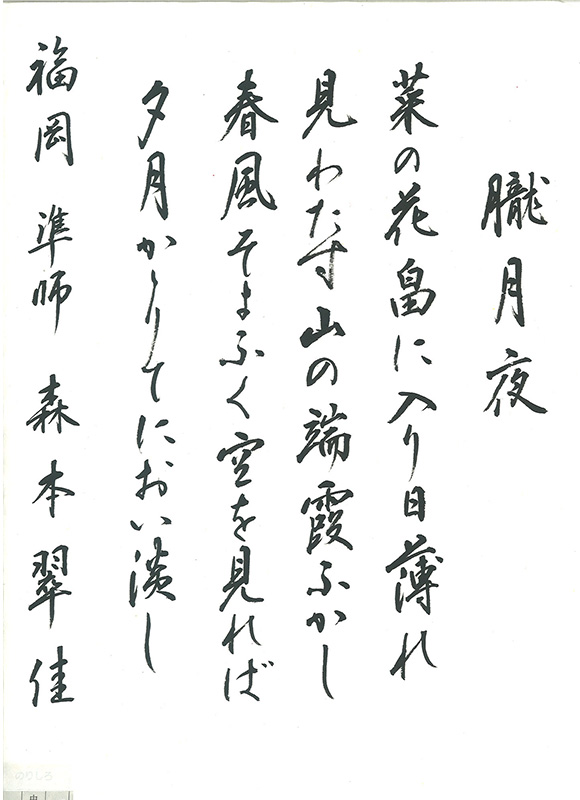 朧月夜
菜の花畠に入り日薄れ
見わたす山の端霞ふかし
春風そよふく空を見れば
夕月かゝりてにおい淡し
福岡 準師 森本翠佳
のりしろ